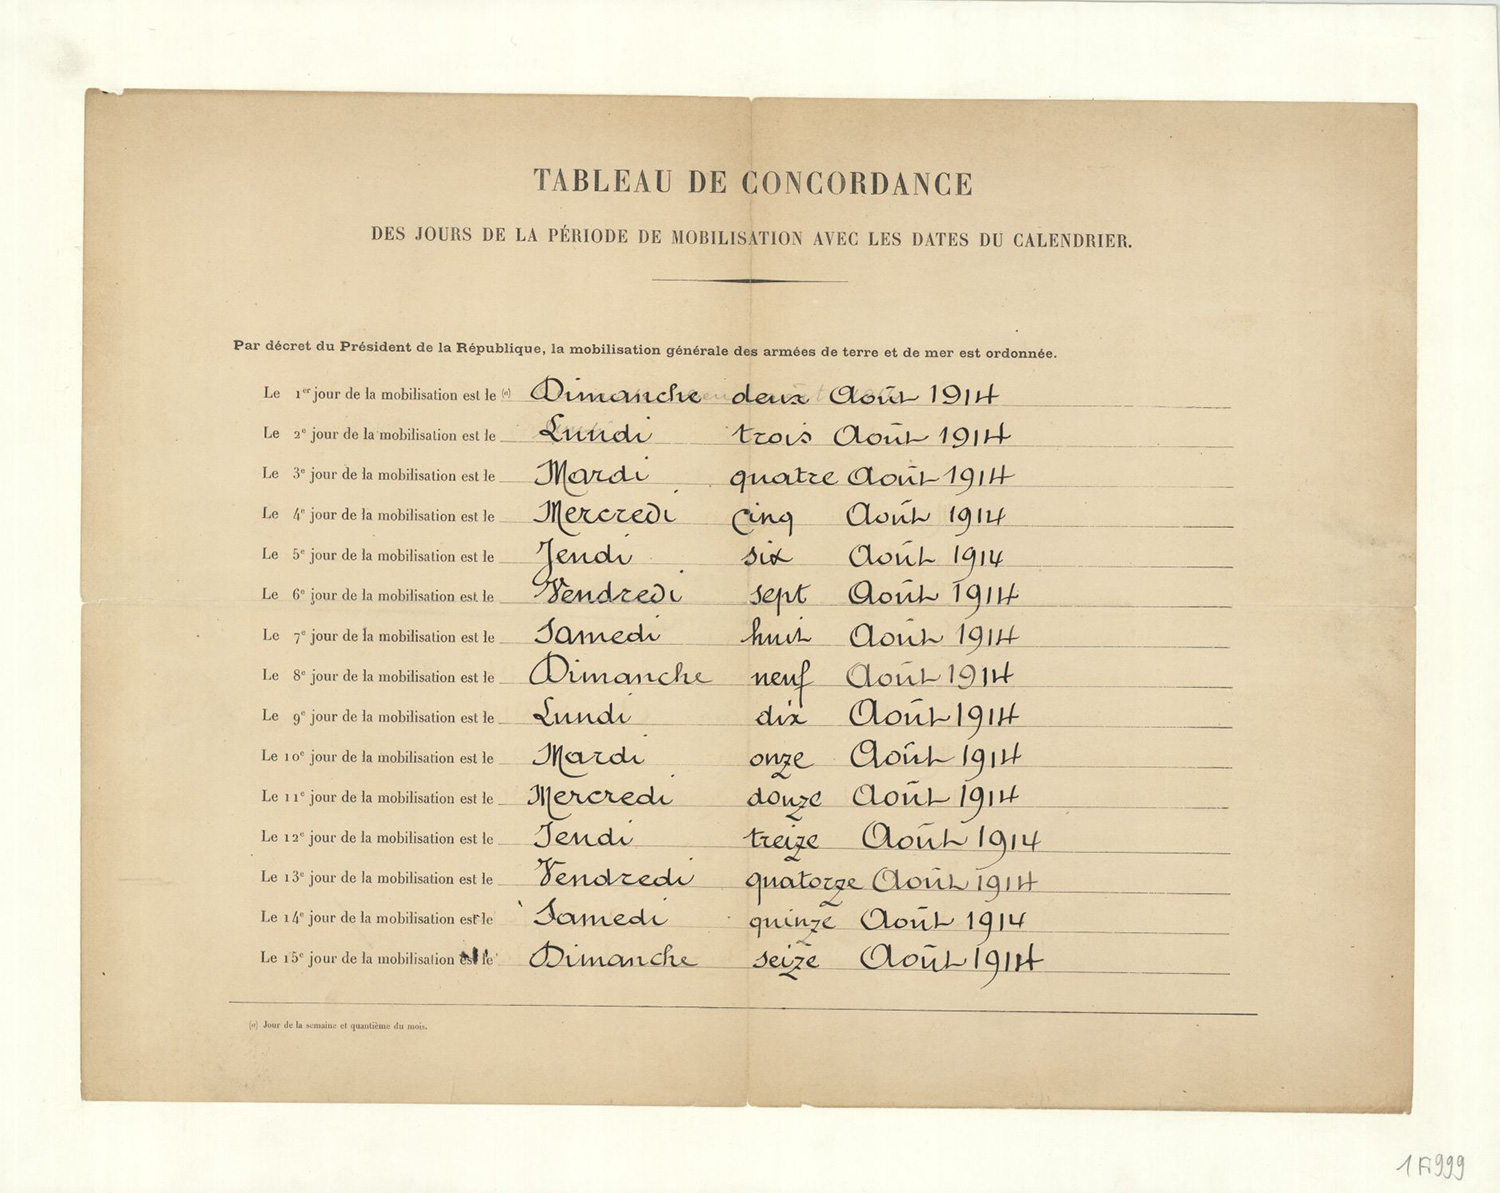 TABLEAU DE CONCORDANCE
DES JOURS DE LA PÉRIODE DE MOBILISATION AVEC LES DATES DU CALENDRIER.
Par décret du Président de la République, la mobilisation générale des armées de terre et de mer est ordonnée.
Le 1er jour de la mobilisation est le (a) Dimanche deux Août 1914
Le 2e jour de la mobilisation est le Lundi trois Août 1914
Le 3e jour de la mobilisation est le Mardi quatre Août 1914
Le 4e jour de la mobilisation est le Mercredi cinq Août 1914
Le 5e jour de la mobilisation est le Jeudi six Août 1914
Le 6e jour de la mobilisation est le Vendredi sept Août 1914
Le 7e jour de la mobilisation est le Samedi huit Août 1914
Le 8e jour de la mobilisation est le Dimanche neuf Août 1914
Le 9e jour de la mobilisation est le Lundi dix Août 1914
Le 10e jour de la mobilisation est le Mardi onze Août 1914
Le 11e jour de la mobilisation est le Mercredi douze Août 1914
Le 12e jour de la mobilisation est le Jeudi treize Août 1914
Le 13e jour de la mobilisation est le Vendredi quatorze Août 1914
Le 14e jour de la mobilisation est le Samedi quinze Août 1914
Le 15e jour de la mobilisation est le Dimanche seize Août 1914
(a) Jour de la semaine et quantième du mois.
1 Fi 999